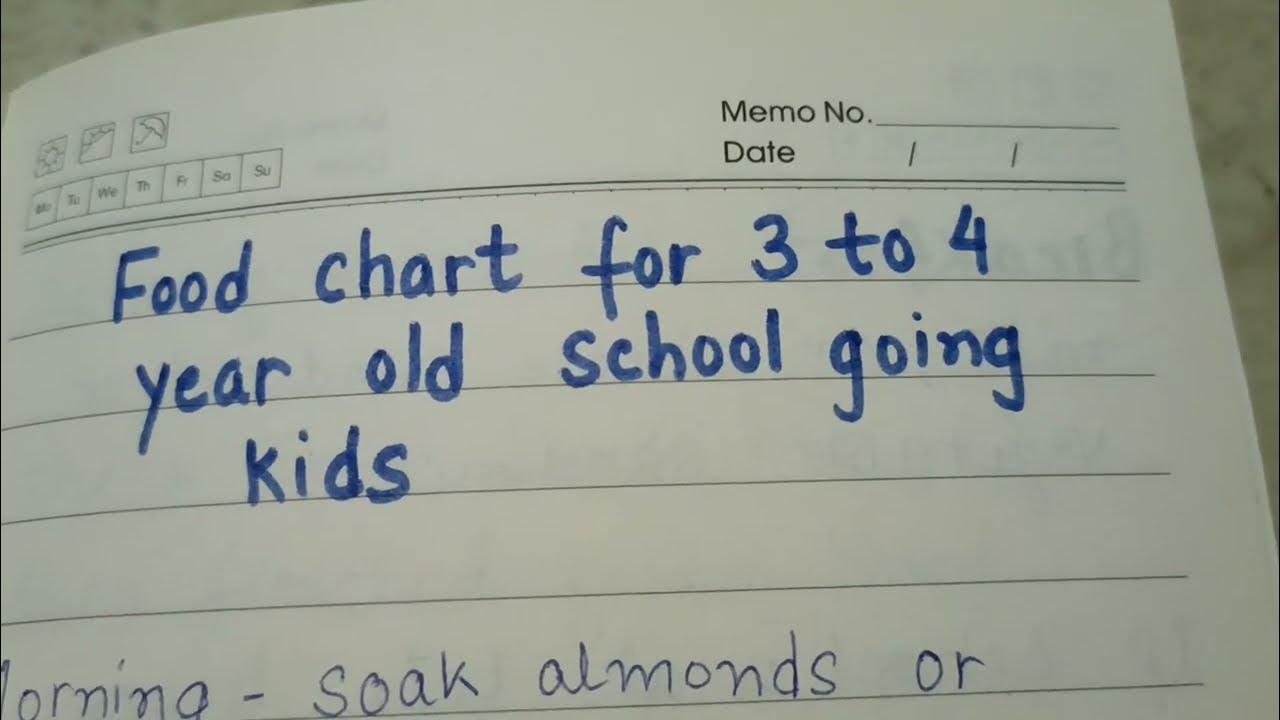 Memo No.
Date / /
Mo Tu We Th Fr Sa Su
Food chart for 3 to 4
year old school going
kids
Morning - soak almonds or